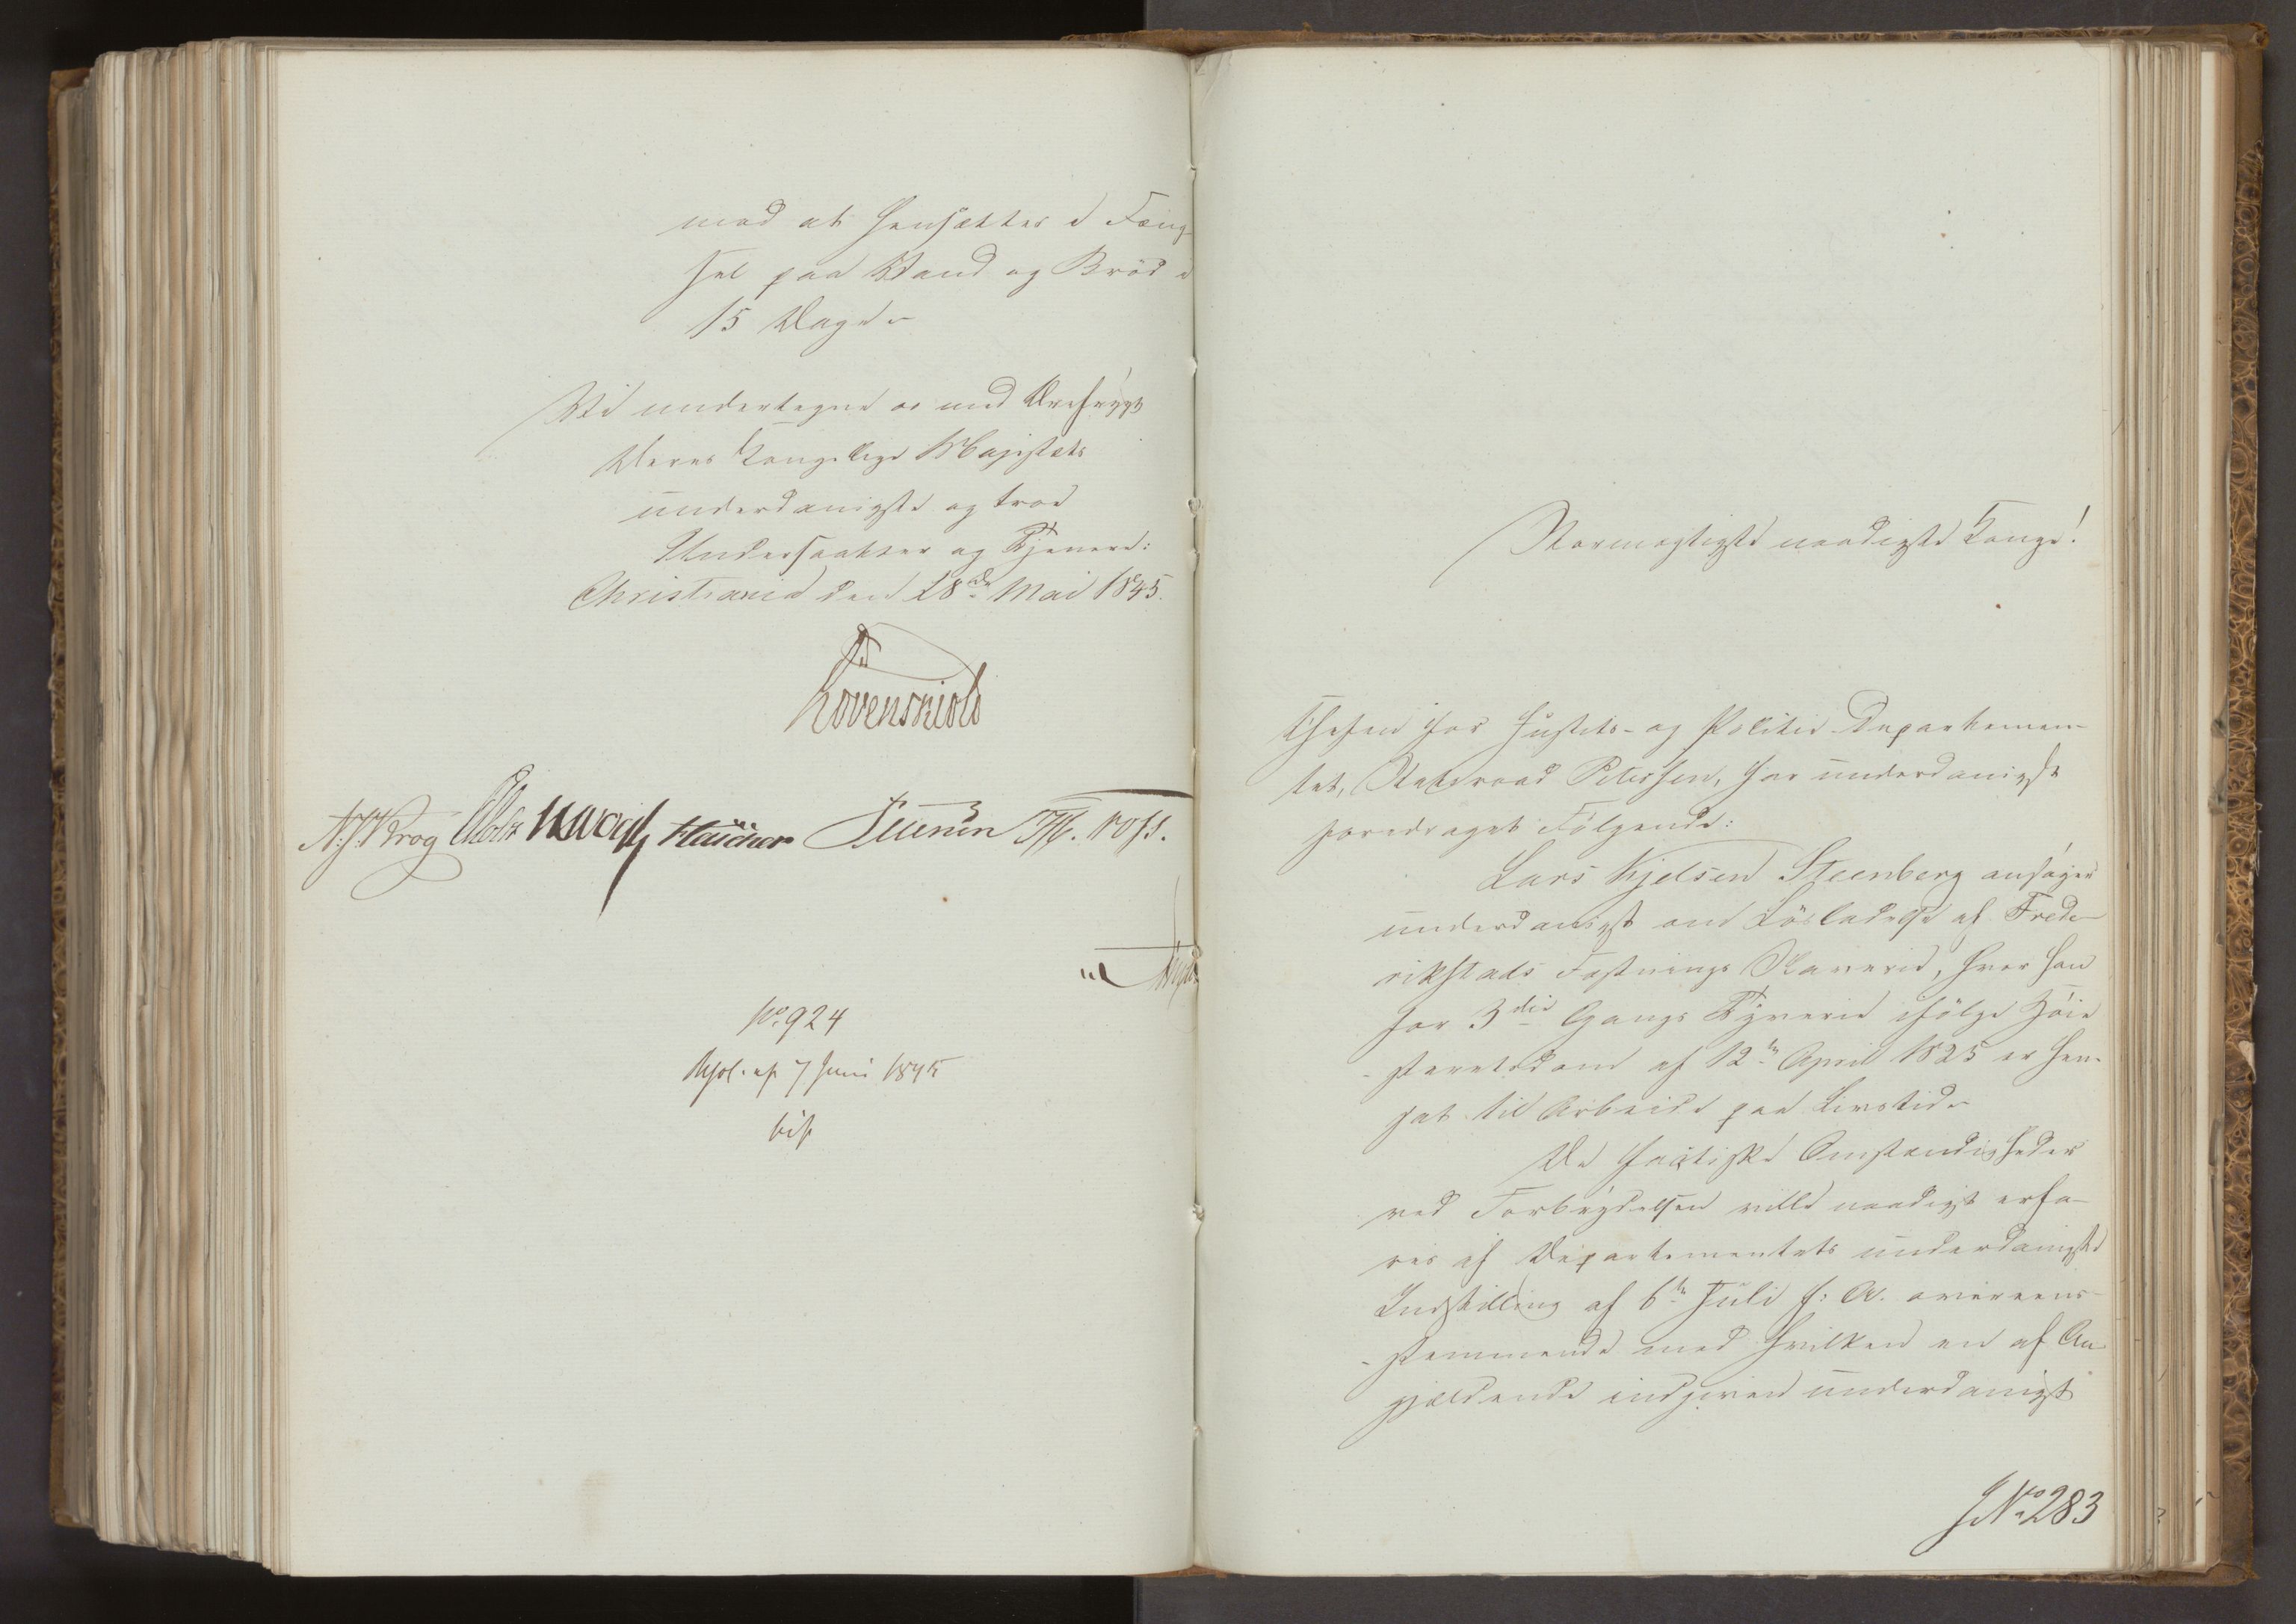 mod at hensættes i Fæng-
sel paa Vand og Bröd i
15 Dage.
Vi undertegne os med Ærefrygt
Deres Kongelige Majestæts
underdanigste og troe
Undersaatter og Tjenere:
Christiania den 28de Mai 1845.
Lövenskiold
N. J. Krog Vogt Sibbern
No 924
Resol. af 7 Juni 1845
Stormægtigste naadigste Konge!
Chefen for Justits- og Politie-Departemen-
tet, Statsraad Petersen, har underdanigst
foredraget Fölgende:
Lars Kjelsen Steenberg ansöger
underdanigst om Lösladelse af Frede-
rikstads Fæstnings Slaverie, hvor han
for 3die Gangs Tyverie ifölge Höie-
steretsdom af 12te April 1825 er hen-
sat til Arbeide paa Livstid.
De factiske Omstændigheder
ved Forbrydelsen ville naadigst erfa-
res af Departementets underdanigste
Indstilling af 6te Juli f: A. overeens-
stemmende med hvilken en af An-
gjældende indgiven underdanigst
JNo 283